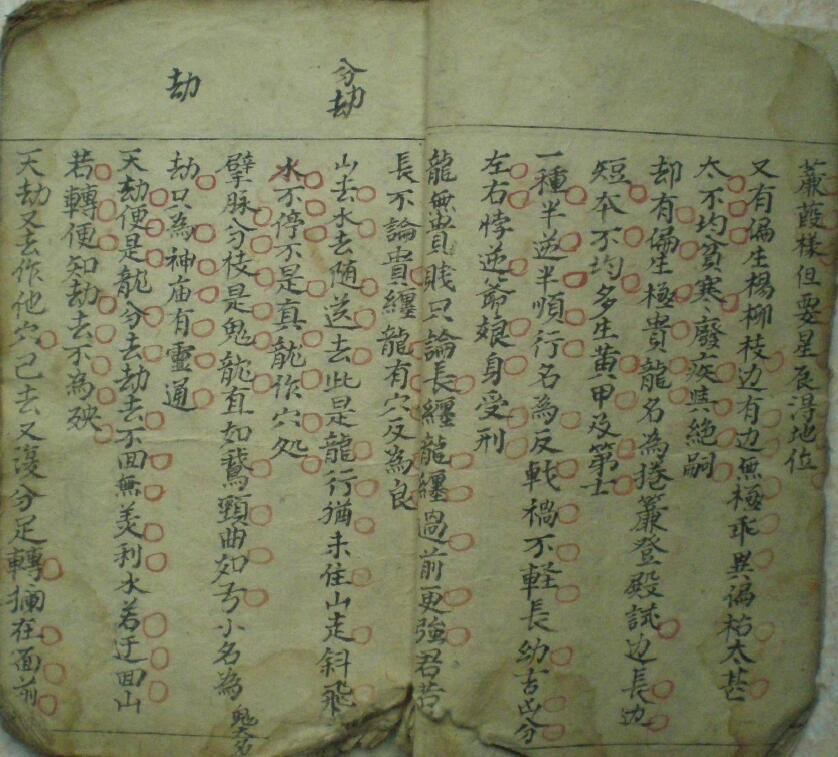 蒹葭樣但要星辰淂地位
又有偏生楊柳枝边有边無極乖異偏枯太甚
太不均貧寒廢疾兴絶嗣
却有偏生極貴龍名為捲簾登殿試边長边
短夲不均多生黄甲及第士
一種半逆半順行名為反戟禍不軽長幼吉凶分
左右悖逆爺娘身受刑
龍無貴賎只論長纏龍纏過前更強君若
長不論貴纏龍有穴反為良
分劫
山去水去随送去此是龍行猶未住山走斜飛
水不停不是真龍作穴処
擘脉分枝是鬼龍直如鵞頸曲如弓小名為
劫
劫只為神庙有靈通
天劫便是龍分去劫去不回無美利水若迂回山
若轉便知劫去不為殃
天劫又去作他穴己去又復分足轉攔在面前